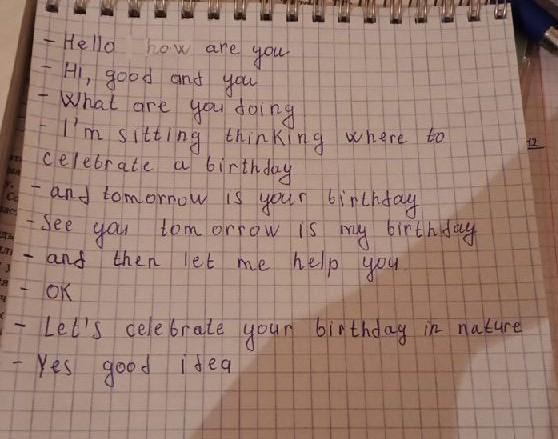 - Hello how are you
- Hi, good and you
- What are you doing
- I'm sitting thinking where to
celebrate a birthday
- and tomorrow is your birthday
- See you tomorrow is my birthday
- and then let me help you
- OK
- Let's celebrate your birthday in nature
- Yes good idea